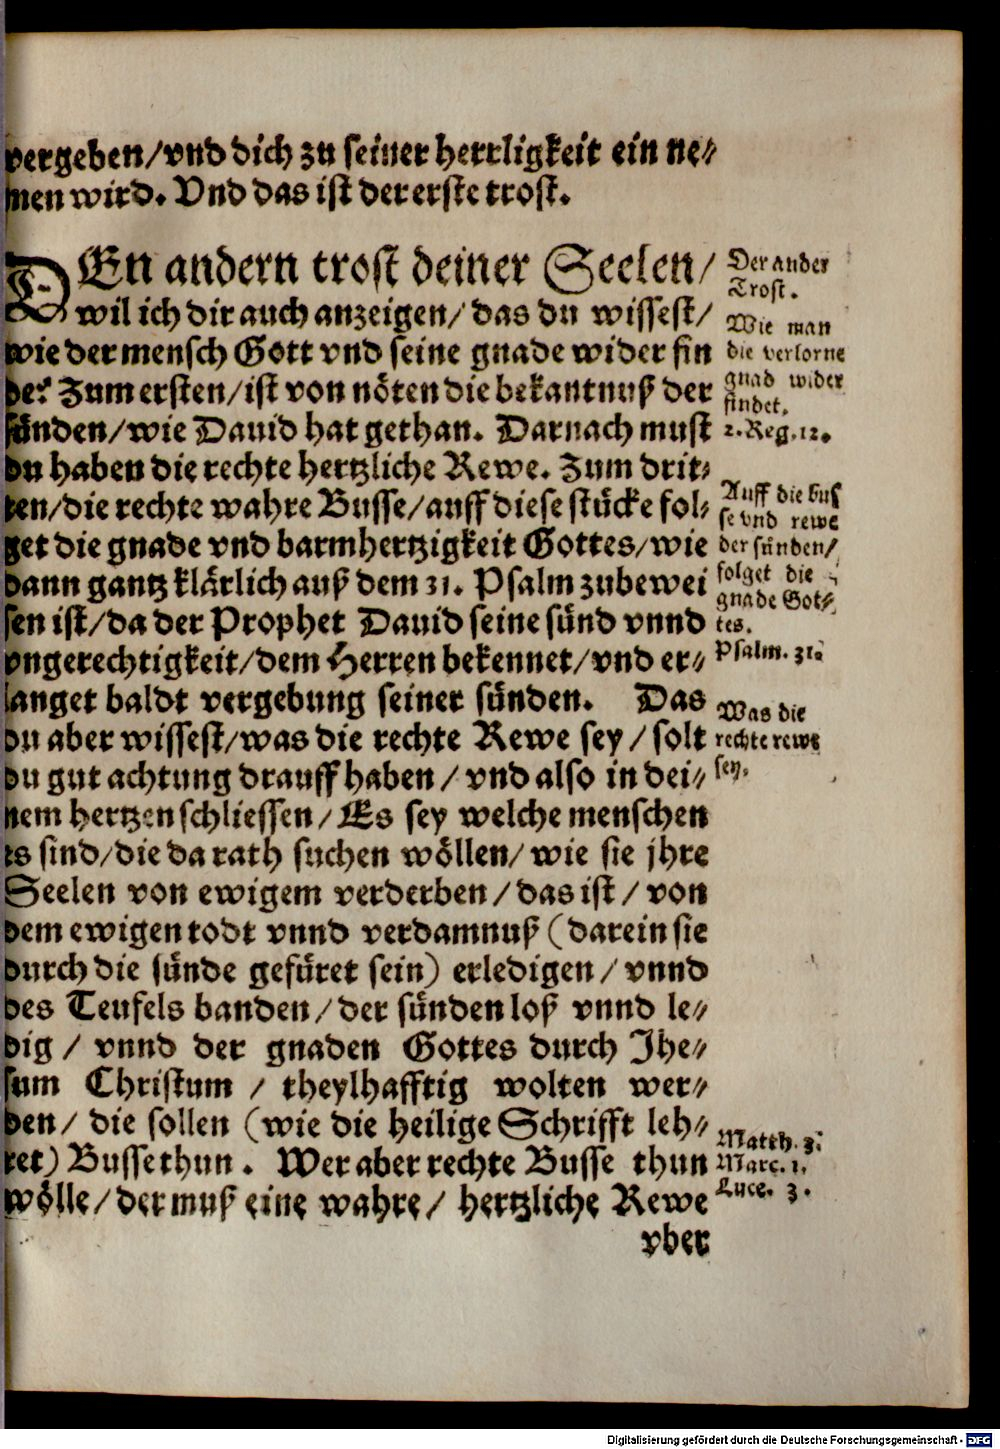 vergeben/vnd dich zu seiner herrligkeit ein ne⸗
men wird. Vnd das ist der erste trost.
DEn andern trost deiner Seelen/
wil ich dir auch anzeigen/ das du wissest/
wie der mensch Gott vnd seine gnade wider fin
de: Zum ersten/ist von nöten die bekantnuß der
sünden/wie Dauid hat gethan. Darnach must
du haben die rechte hertzliche Rewe. Zum drit⸗
ten/die rechte wahre Busse/auff diese stücke fol⸗
get die gnade vnd barmhertzigkeit Gottes/wie
dann gantz klärlich auß dem 31. Psalm zubewei
sen ist/da der Prophet Dauid seine sünd vnnd
vngerechtigkeit/dem Herren bekennet/vnd er⸗
langet baldt vergebung seiner sünden. Das
du aber wissest/was die rechte Rewe sey/ solt
du gut achtung drauff haben/ vnd also in dei⸗
nem hertzen schliessen/ Es sey welche menschen
es sind/die da rath suchen wöllen/ wie sie jhre
Seelen von ewigem verderben/das ist/ von
dem ewigen todt vnnd verdamnuß (darein sie
durch die sünde gefüret sein) erledigen/ vnnd
des Teufels banden/der sünden loß vnnd le⸗
dig/ vnnd der gnaden Gottes durch Jhe⸗
sum Christum/ theylhafftig wolten wer⸗
den/ die sollen (wie die heilige Schrifft leh⸗
ret) Busse thun. Wer aber rechte Busse thun
wölle/der muß eine wahre/ hertzliche Rewe
vber
Der ander
Trost.
Wie man
die verlorne
gnad wider
findet.
2. Reg. 12.
Auff die bus
se vnd rewe
der sünden/
folget die
gnade Got⸗
tes.
Psalm. 31.
Was die
rechte rewe
sey.
Matth. 3.
Marc. 1.
Luce. 3.
Digitalisierung gefördert durch die Deutsche Forschungsgemeinschaft - DFG